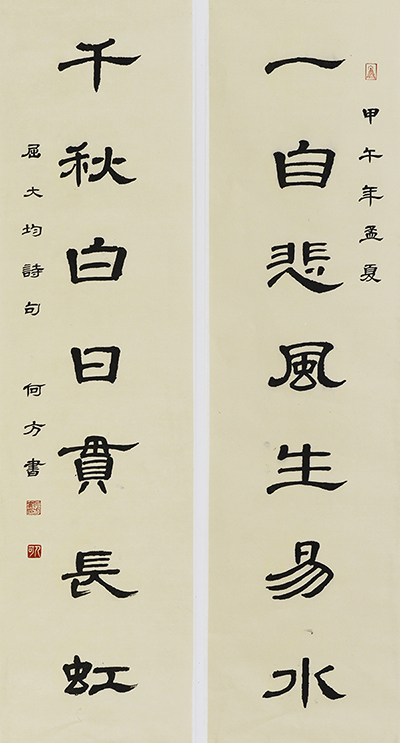 甲午年孟夏
一自悲風生易水
千秋白日貫長虹
屈大均詩句 何方書